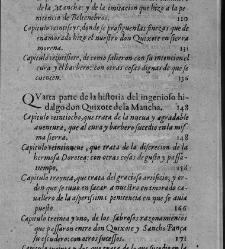 de la Mancha: y de la imitacion que hizo a la pe-
nitencia de Beltenebros. 120
Capitulo veintiseys, donde se prosiguen las finezas que de
enamorado hizo el nuestro don Quixote en sierra
morena. 131
Capitulo veintisiete, de como salieron con su intencion el
cura y el barbero: con otras cosas dignas de que se
cuenten. 136
QVarta parte de la historia del ingenioso hi-
dalgo don Quixote de la Mancha. 148
Capitulo veintiocho, que trata de la nueua y agradable
auentura, que al cura y barbero sucedio en la misma
sierra. 148
Capitulo veintinueue, que trata de la discrecion de la
hermosa Dorotea: con otras cosas de gusto y passa-
tiempo.
Capitulo treynta, que trata del gracioso artificio, y or-
den que se tuuo en sacar a nuestro enamorado ca-
uallero de la asperissima penitencia en que se auia
puesto. 166
Capitulo treinta y uno, de los sabrosos razonamientos
que passaron entre don Quixote y Sancho Pança
su escudero: con otros sucessos. 171